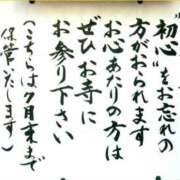 "初心"をお忘れの
方がおられます
お心あたりの方は
ぜひお寺に
お参り下さい
(こちらは夕月末まで
保管いたします)